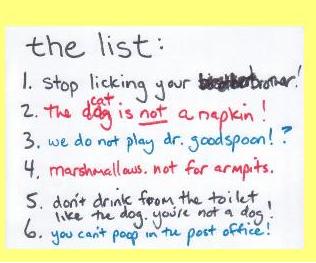 the list:
1. stop licking your brother!
2. the cat is not a napkin!
3. we do not play dr. goodspoon!?
4. marshmallows. not for armpits.
5. don't drink from the toilet
like the dog. you're not a dog!
6. you can't poop in the post office!